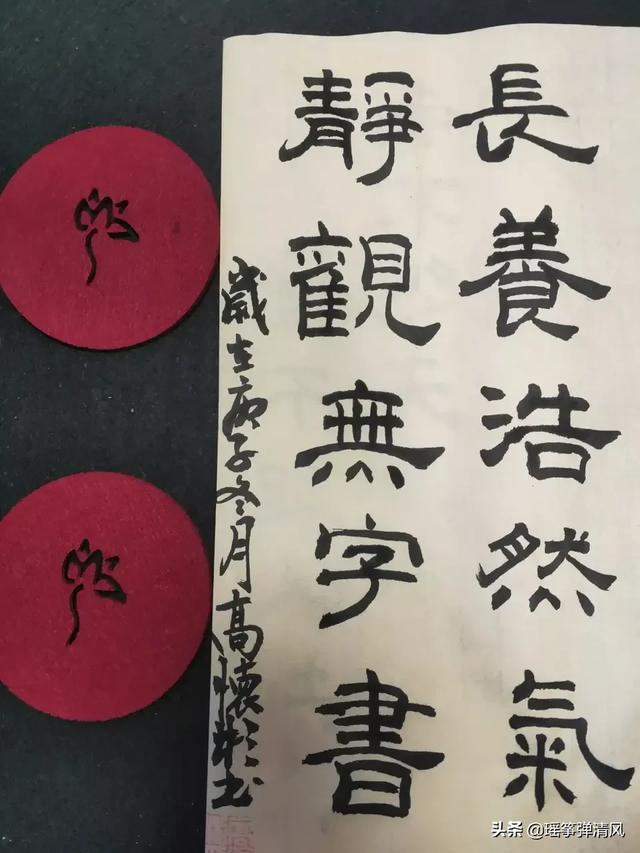 長養浩然氣
靜觀無字書
歲在庚子冬月高懷
头条 @瑶筝弹清风